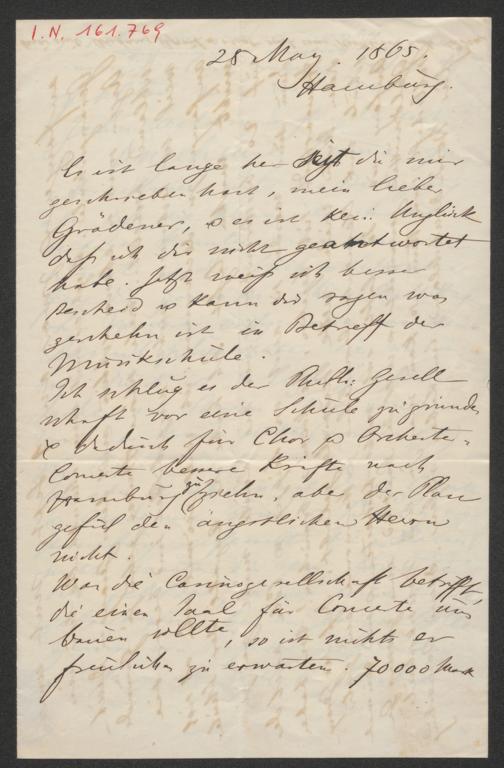 I.N. 161.769
28 May. 1865.
Hamburg.
Es ist lange her seit du mir
geschrieben hast, mein lieber
Grädener, & es ist kein Unglück
daß ich dir nicht geantwortet
habe. Jetzt weiß ich besser
Bescheid & kann dir sagen was
geschehn ist in Betreff der
Musikschule.
Ich schlug es der Philh: Gesell
schaft vor eine Schule zu gründen
& dadurch für Chor & Orchester-
Concerte bessere Kräfte nach
Hamburg zu ziehn, aber der Plan
gefiel den ängstlichen Herrn
nicht.
Was die Casinogesellschaft betrifft,
die einen Saal für Concerte uns
bauen wollte, so ist nichts er
freuliches zu erwarten. 70000 Mark